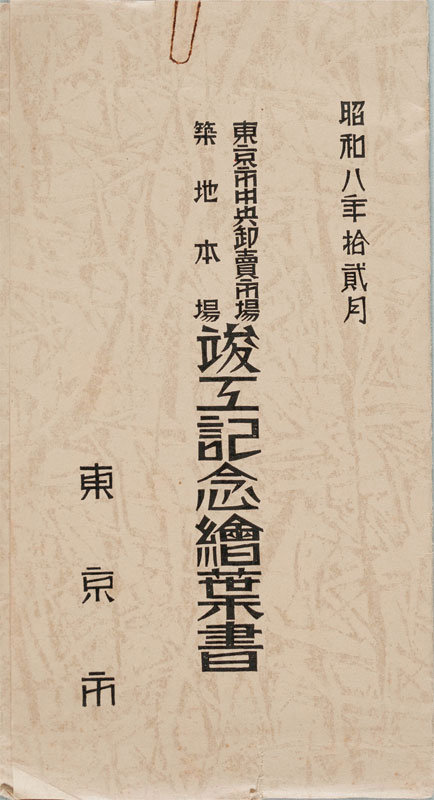 昭和八年拾貳月
東京市中央卸賣市場
築地本場
竣工記念繪葉書
東京市